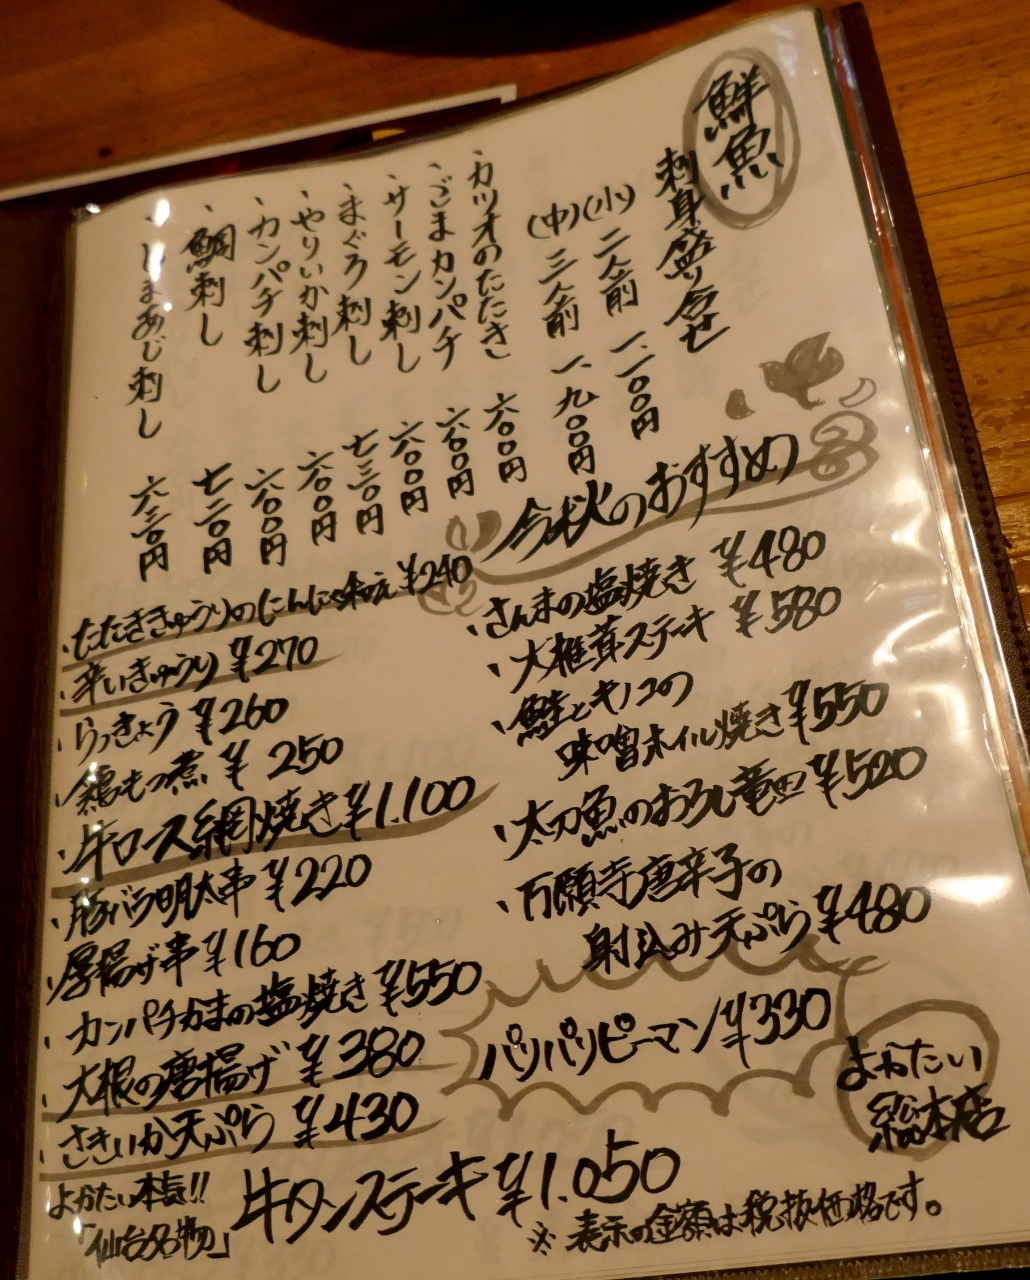 鮮魚
刺身盛り合せ
(小) 二人前 一、一〇〇円
(中) 三人前 一、九〇〇円
・カツオのたたき 六〇〇円
・ごまカンパチ 六〇〇円
・サーモン刺し 六〇〇円
・まぐろ刺し 七三〇円
・やりいか刺し 六〇〇円
・カンパチ刺し 六〇〇円
・鯛刺し 七三〇円
・しまあじ刺し 六三〇円
今秋のおすすめ
・さんまの塩焼き ¥480
・大椎茸ステーキ ¥580
・鮭とキノコの
味噌ホイル焼き ¥550
・太刀魚のおろし竜田 ¥520
・万願寺唐辛子の
射込み天ぷら ¥480
パリパリピーマン ¥330
・たたききゅうりのにんにく和え ¥240
・辛いきゅうり ¥270
・らっきょう ¥260
・鶏もつ煮 ¥250
・牛ロース網焼き ¥1.100
・豚バラ明太串 ¥220
・厚揚げ串 ¥160
・カンパチかまの塩焼き ¥550
・大根の唐揚げ ¥380
・さきいか天ぷら ¥430
よかたい本気!!
「仙台名物」
牛タンステーキ ¥1.050
※表示の金額は税抜価格です。
よかたい
総本店